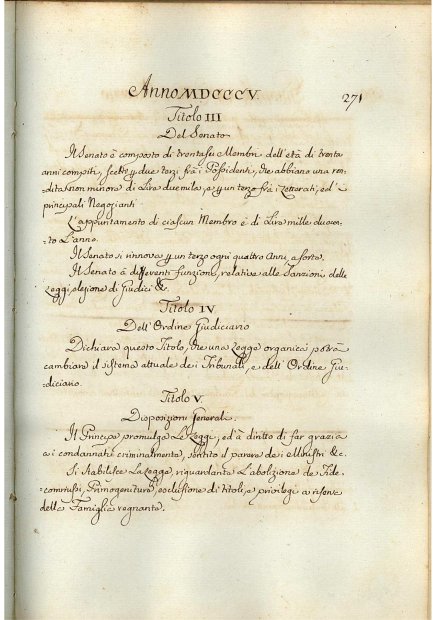 Anno MDCCCV. 271
Titolo III
Del Senato
Il Senato è composto di trentasei Membri dell'età di trenta
anni compiti, scelti p due terzi frà i Possidenti, che abbiano una ren-
dita non minore di Lire due mila, e p un terzo frà i Letterati, ed i
principali Negozianti
L'appuntamento di ciascun Membro è di Lire mille duecen-
to l'anno.
Il Senato si rinnova p un terzo ogni quattro Anni, a sorte.
Il Senato à differenti funzioni, relative alle Sanzioni delle
Leggi, elezione di Giudici &c.
Titolo IV
Dell'Ordine Giudiciario
Dichiara questo Titolo, che una Legge organica potrà
cambiare il sistema attuale dei Tribunali, e dell'Ordine Giu-
diciario.
Titolo V.
Disposizioni Generali.
Il Principe promulga le Leggi, ed à diritto di far grazia
ai condannati criminalmente, sentito il parere dei Ministri &c.
Si stabilisce la Legge, riguardante l'abolizione de Fide-
commissi, Primogeniture, esclusione di titoli, e privilegi a riserva
della Famiglia regnante.